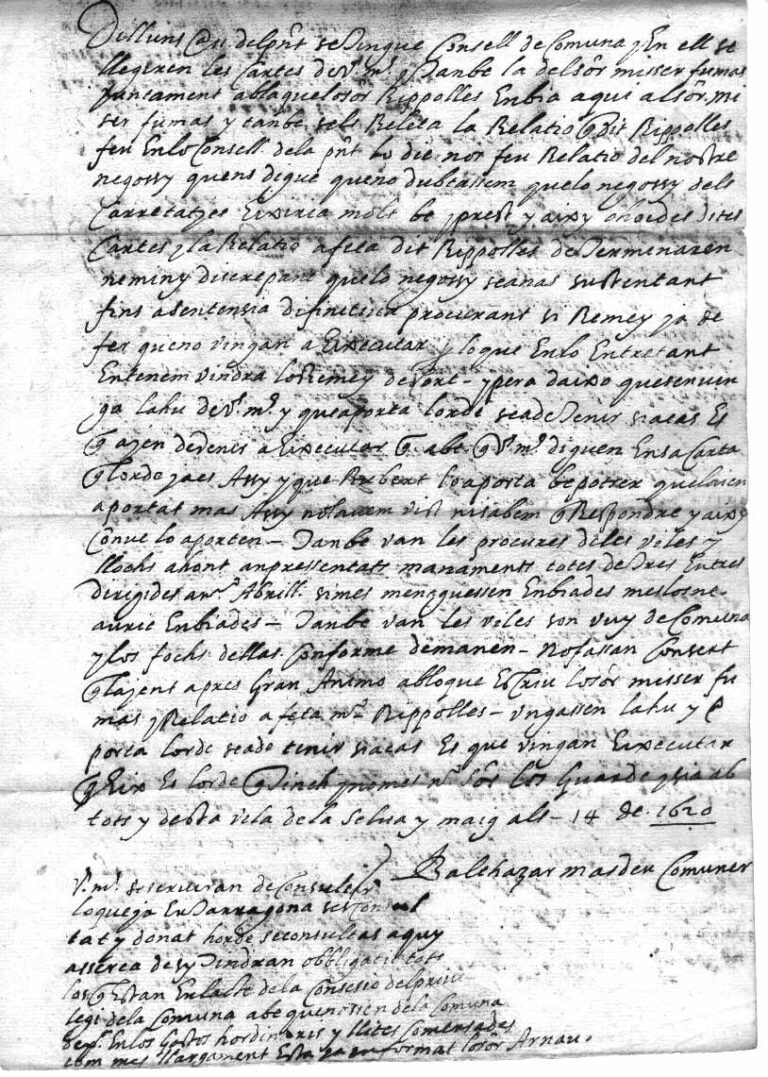 Dilluns @ 11 del pñt se Tingue Consell de Comuna y En ell se
llegiren les Cartes de v. mˢ. y Tanbe la del sõr misser fumas
juntament ab la que lo sor Rippolles Enbia aqui al sõr. mi
ser fumas y tanbe sels Relata la Relatio @ dit Rippolles
feu En lo Consell. de la pñt lo die nos feu Relatio del nostre
negossy quens digue que no dubtassem que lo negossy dels
Carretatzes Exiria molt be y prest y axy ohoides dites
Cartes y la Relatio a feta dit Rippolles determinaren
neminy discrepant que lo negossy se anas sustentant
fins a sentensia difinitiva procurant si Remey ja de
fer que no vingan a Executar y lo que En lo Entretant
Entenem vindra lo Remey de Cort - y pera daixo que sen vin
ga lahu de v. mˢ. y que aporta lorde se a de Tenir si acas Es
@ ajen de venir a Executar @ abe @ v. mˢ. diguen En sa Carta
@ lorde ja es Assy y que Arbert lo aporta be potser que lagen
aportat mas Assy no lavem vist ni sabem @ Respondre y axy
Conve lo aporten - Tanbe van les procures de les viles y
llochs ahont an pressentats manaments totes de Tres Entres
dirigides a mˢ. Abrill. si mes menguessen Enbiades mes los ne
auria Enbiades - Tanbe van les viles son vuy de Comuna
y los fochs dellas. Conforme demanen - No fassan Consert
@ lagens apres Gran Animo ab lo que Escriu lo sõr misser fu
mas y Relatio a feta mˢ. Rippolles - vngassen lahu y @
porta lorde se a de tenir si acas Es que vingan Executar
@ Eix Es lorde @ Tinch y nomes nˢ. sõr los Guarde y sia ab
tots y desta vila de la Selva y maig als - 14 de. 1620
Balthazar masdeu Comuner
v. mˢ. se serviran de Consultar
lo que ja En Tarragona ses Consul
tat y donat horde se consultas aquy
asserca de sy Tindran obbligatio tots
los @ Estan En lacte de la Consesio del privi
legi de la Comuna abe que no sien de la Comuna
de p. En los Gastos hordinaris y llites Comensades
com mes llargament Esta ja informat lo sõr Arnau.